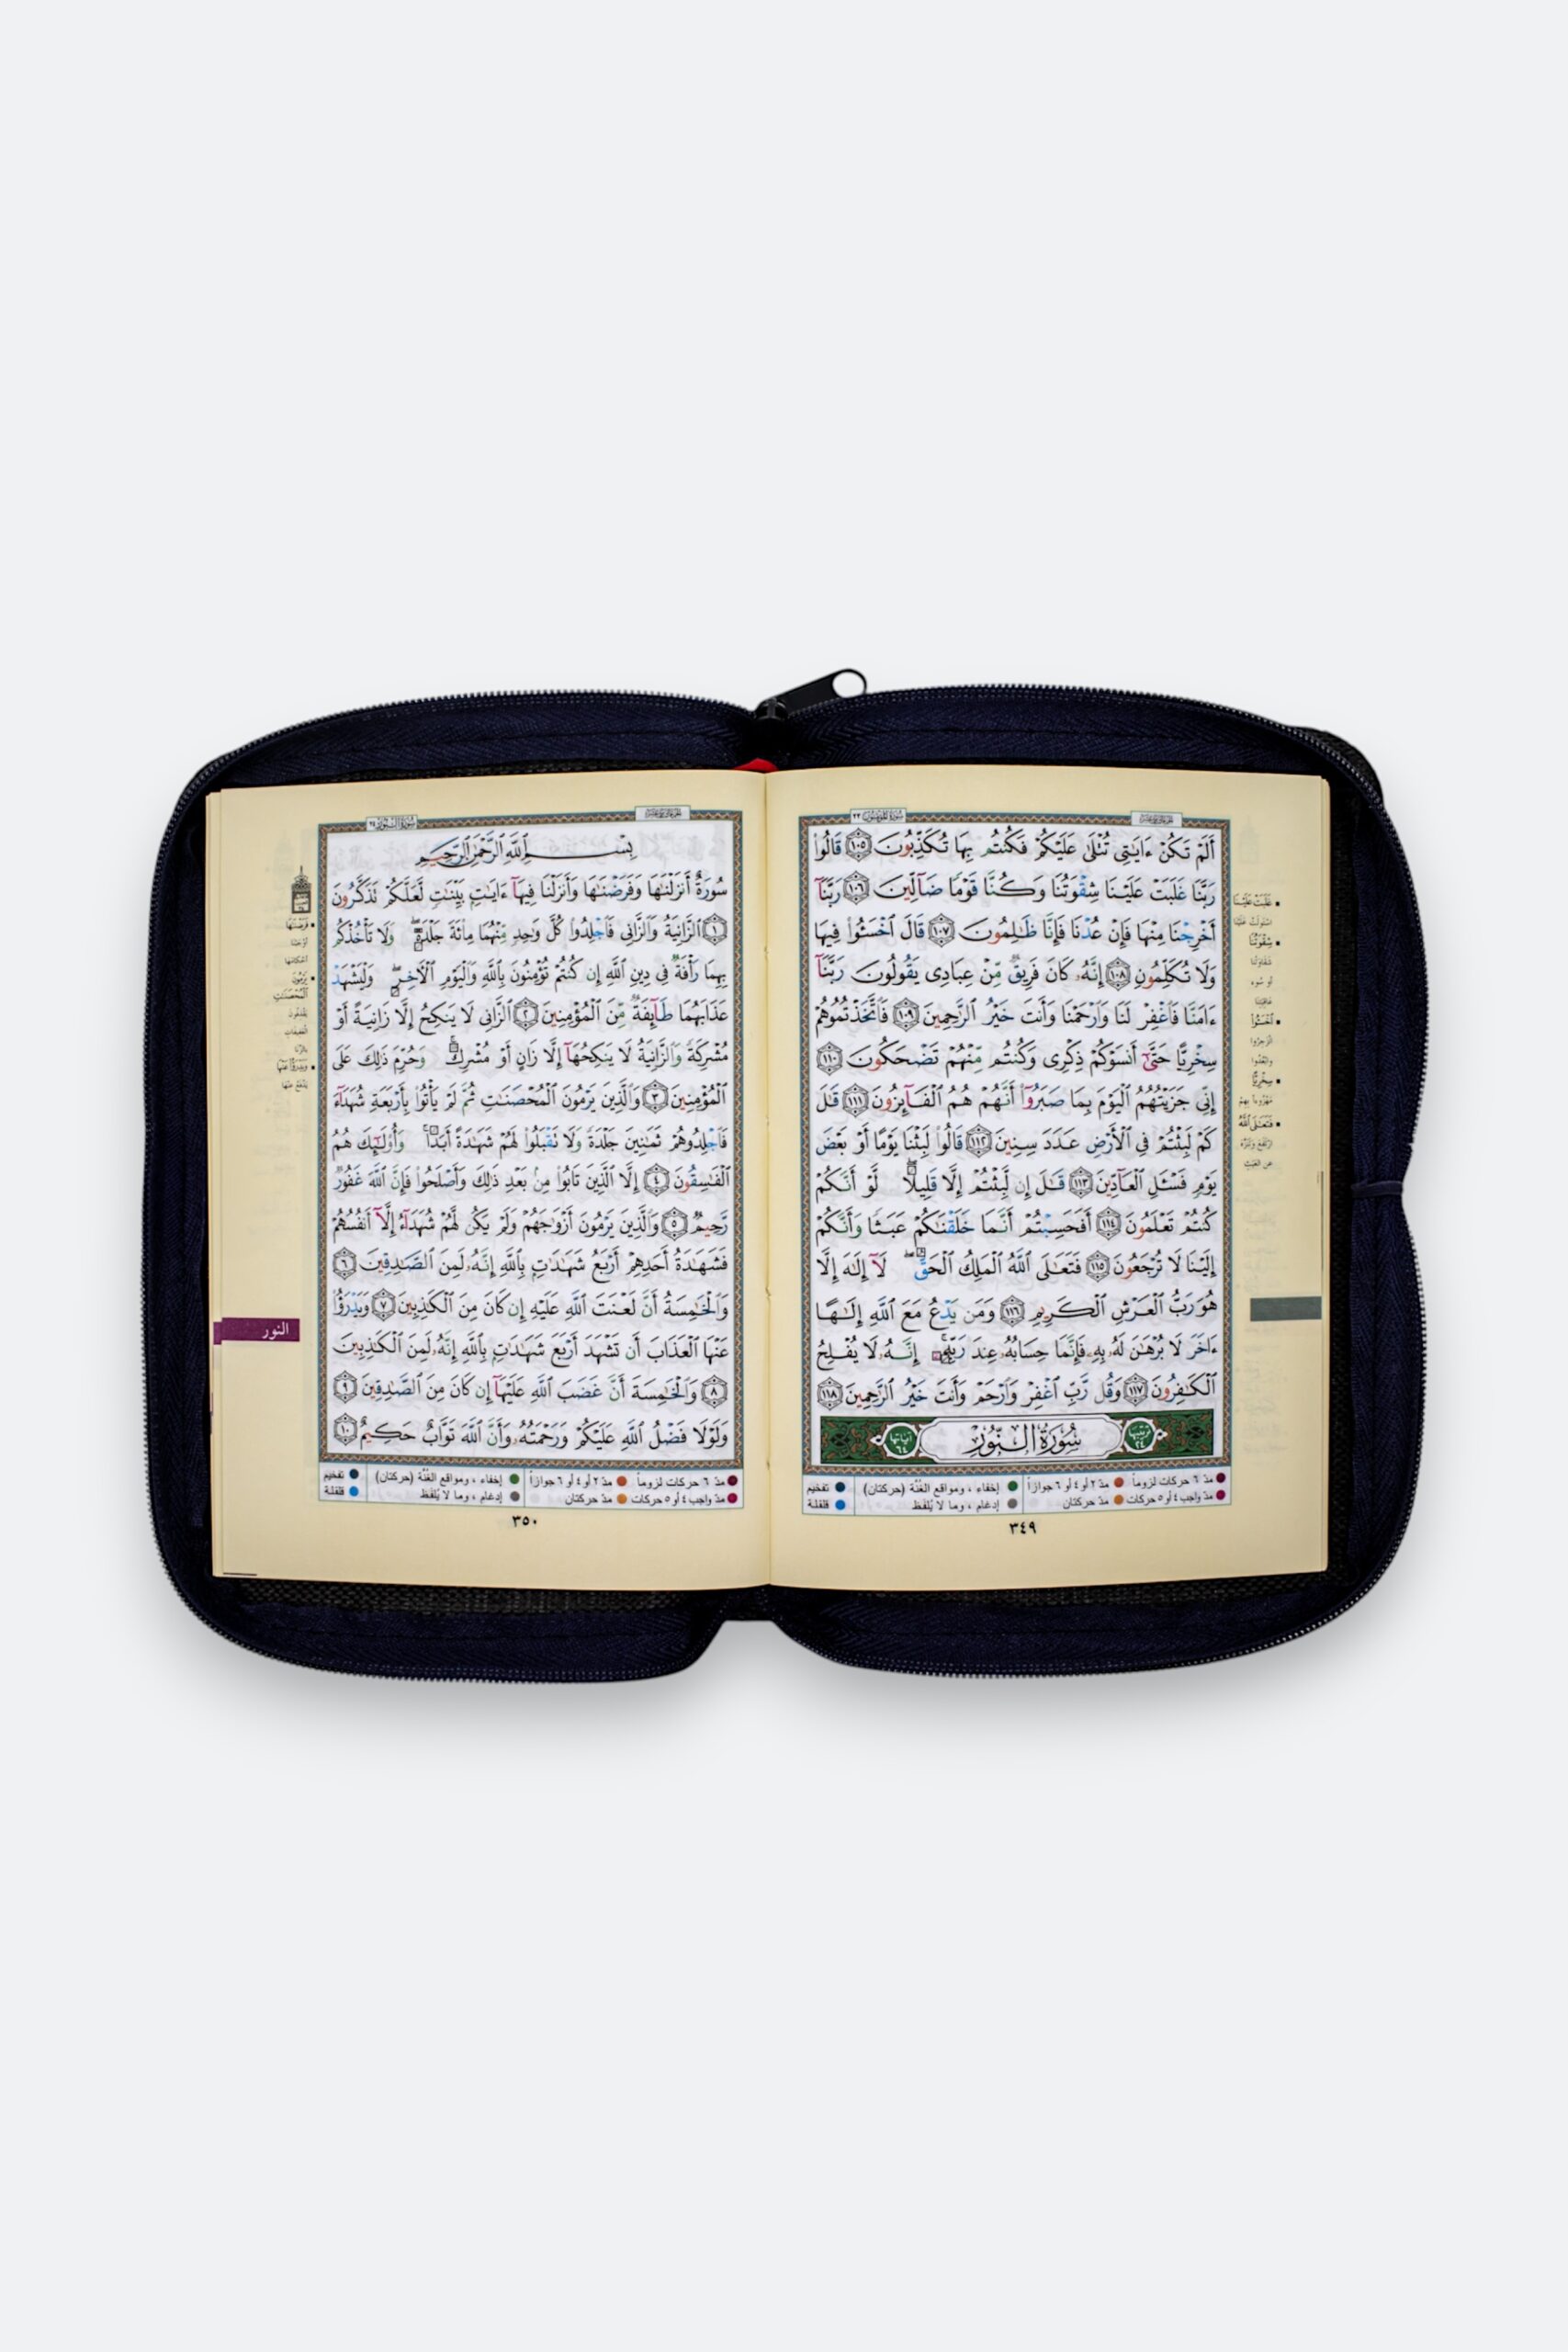 سُورَةُ المُؤْمِنُونَ ٢٣
أَلَمْ تَكُنْ ءَايَٰتِى تُتْلَىٰ عَلَيْكُمْ فَكُنتُم بِهَا تُكَذِّبُونَ ١٠٥ قَالُوا۟
رَبَّنَا غَلَبَتْ عَلَيْنَا شِقْوَتُنَا وَكُنَّا قَوْمًا ضَآلِّينَ ١٠٦ رَبَّنَآ
أَخْرِجْنَا مِنْهَا فَإِنْ عُدْنَا فَإِنَّا ظَٰلِمُونَ ١٠٧ قَالَ ٱخْسَـُٔوا۟ فِيهَا
وَلَا تُكَلِّمُونِ ١٠٨ إِنَّهُۥ كَانَ فَرِيقٌ مِّنْ عِبَادِى يَقُولُونَ رَبَّنَآ
ءَامَنَّا فَٱغْفِرْ لَنَا وَٱرْحَمْنَا وَأَنتَ خَيْرُ ٱلرَّٰحِمِينَ ١٠٩ فَٱتَّخَذْتُمُوهُمْ
سِخْرِيًّا حَتَّىٰٓ أَنسَوْكُمْ ذِكْرِى وَكُنتُم مِّنْهُمْ تَضْحَكُونَ ١١٠
إِنِّى جَزَيْتُهُمُ ٱلْيَوْمَ بِمَا صَبَرُوٓا۟ أَنَّهُمْ هُمُ ٱلْفَآئِزُونَ ١١١ قَٰلَ
كَمْ لَبِثْتُمْ فِى ٱلْأَرْضِ عَدَدَ سِنِينَ ١١٢ قَالُوا۟ لَبِثْنَا يَوْمًا أَوْ بَعْضَ
يَوْمٍ فَسْـَٔلِ ٱلْعَآدِّينَ ١١٣ قَٰلَ إِن لَّبِثْتُمْ إِلَّا قَلِيلًا لَّوْ أَنَّكُمْ
كُنتُمْ تَعْلَمُونَ ١١٤ أَفَحَسِبْتُمْ أَنَّمَا خَلَقْنَٰكُمْ عَبَثًا وَأَنَّكُمْ
إِلَيْنَا لَا تُرْجَعُونَ ١١٥ فَتَعَٰلَى ٱللَّهُ ٱلْمَلِكُ ٱلْحَقُّ لَآ إِلَٰهَ إِلَّا
هُوَ رَبُّ ٱلْعَرْشِ ٱلْكَرِيمِ ١١٦ وَمَن يَدْعُ مَعَ ٱللَّهِ إِلَٰهًا
ءَاخَرَ لَا بُرْهَٰنَ لَهُۥ بِهِۦ فَإِنَّمَا حِسَابُهُۥ عِندَ رَبِّهِۦٓ إِنَّهُۥ لَا يُفْلِحُ
ٱلْكَٰفِرُونَ ١١٧ وَقُل رَّبِّ ٱغْفِرْ وَٱرْحَمْ وَأَنتَ خَيْرُ ٱلرَّٰحِمِينَ ١١٨
ترتيبها ٢٤ سُورَةُ النُّورِ آياتها ٦٤
غَلَبَتْ عَلَيْنَا
استولت علينا
شِقْوَتُنَا
شقاوتنا
أو سُوء
عاقبتنا
ٱخْسَـُٔوا۟
انزجروا
وابعُدوا
سِخْرِيًّا
مهزوءاً بهم
فَتَعَٰلَى ٱللَّهُ
ارتفع وتنزّه
عن العبث
مدّ ٦ حركات لزوماً مدّ ٢ أو ٤ أو ٦ جوازاً إخفاء ، ومواقع الغُنّة (حركتان) تفخيم
مدّ واجب ٤ أو ٥ حركات مدّ حركتان إدغام ، وما لا يُلفَظ قلقلة
٣٤٩
سُورَةُ النُّورِ ٢٤
بِسْمِ ٱللَّهِ ٱلرَّحْمَٰنِ ٱلرَّحِيمِ
سُورَةٌ أَنزَلْنَٰهَا وَفَرَضْنَٰهَا وَأَنزَلْنَا فِيهَآ ءَايَٰتٍۭ بَيِّنَٰتٍ لَّعَلَّكُمْ تَذَكَّرُونَ
١ ٱلزَّانِيَةُ وَٱلزَّانِى فَٱجْلِدُوا۟ كُلَّ وَٰحِدٍ مِّنْهُمَا مِا۟ئَةَ جَلْدَةٍ وَلَا تَأْخُذْكُم
بِهِمَا رَأْفَةٌ فِى دِينِ ٱللَّهِ إِن كُنتُمْ تُؤْمِنُونَ بِٱللَّهِ وَٱلْيَوْمِ ٱلْءَاخِرِ وَلْيَشْهَدْ
عَذَابَهُمَا طَآئِفَةٌ مِّنَ ٱلْمُؤْمِنِينَ ٢ ٱلزَّانِى لَا يَنكِحُ إِلَّا زَانِيَةً أَوْ
مُشْرِكَةً وَٱلزَّانِيَةُ لَا يَنكِحُهَآ إِلَّا زَانٍ أَوْ مُشْرِكٌ وَحُرِّمَ ذَٰلِكَ عَلَى
ٱلْمُؤْمِنِينَ ٣ وَٱلَّذِينَ يَرْمُونَ ٱلْمُحْصَنَٰتِ ثُمَّ لَمْ يَأْتُوا۟ بِأَرْبَعَةِ شُهَدَآءَ
فَٱجْلِدُوهُمْ ثَمَٰنِينَ جَلْدَةً وَلَا تَقْبَلُوا۟ لَهُمْ شَهَٰدَةً أَبَدًا وَأُو۟لَٰٓئِكَ هُمُ
ٱلْفَٰسِقُونَ ٤ إِلَّا ٱلَّذِينَ تَابُوا۟ مِنۢ بَعْدِ ذَٰلِكَ وَأَصْلَحُوا۟ فَإِنَّ ٱللَّهَ غَفُورٌ
رَّحِيمٌ ٥ وَٱلَّذِينَ يَرْمُونَ أَزْوَٰجَهُمْ وَلَمْ يَكُن لَّهُمْ شُهَدَآءُ إِلَّآ أَنفُسُهُمْ
فَشَهَٰدَةُ أَحَدِهِمْ أَرْبَعُ شَهَٰدَٰتٍۭ بِٱللَّهِ إِنَّهُۥ لَمِنَ ٱلصَّٰدِقِينَ ٦
وَٱلْخَٰمِسَةُ أَنَّ لَعْنَتَ ٱللَّهِ عَلَيْهِ إِن كَانَ مِنَ ٱلْكَٰذِبِينَ ٧ وَيَدْرَؤُا۟
عَنْهَا ٱلْعَذَابَ أَن تَشْهَدَ أَرْبَعَ شَهَٰدَٰتٍۭ بِٱللَّهِ إِنَّهُۥ لَمِنَ ٱلْكَٰذِبِينَ
٨ وَٱلْخَٰمِسَةَ أَنَّ غَضَبَ ٱللَّهِ عَلَيْهَآ إِن كَانَ مِنَ ٱلصَّٰدِقِينَ ٩
وَلَوْلَا فَضْلُ ٱللَّهِ عَلَيْكُمْ وَرَحْمَتُهُۥ وَأَنَّ ٱللَّهَ تَوَّابٌ حَكِيمٌ ١٠
فَرَضْنَٰهَا
أوجبنا
أحكامها
يَرْمُونَ
ٱلْمُحْصَنَٰتِ
يقذفون
العفيفات
بالزنا
وَيَدْرَؤُا۟ عَنْهَا
يدفع عنها
النور
مدّ ٦ حركات لزوماً مدّ ٢ أو ٤ أو ٦ جوازاً إخفاء ، ومواقع الغُنّة (حركتان) تفخيم
مدّ واجب ٤ أو ٥ حركات مدّ حركتان إدغام ، وما لا يُلفَظ قلقلة
٣٥٠